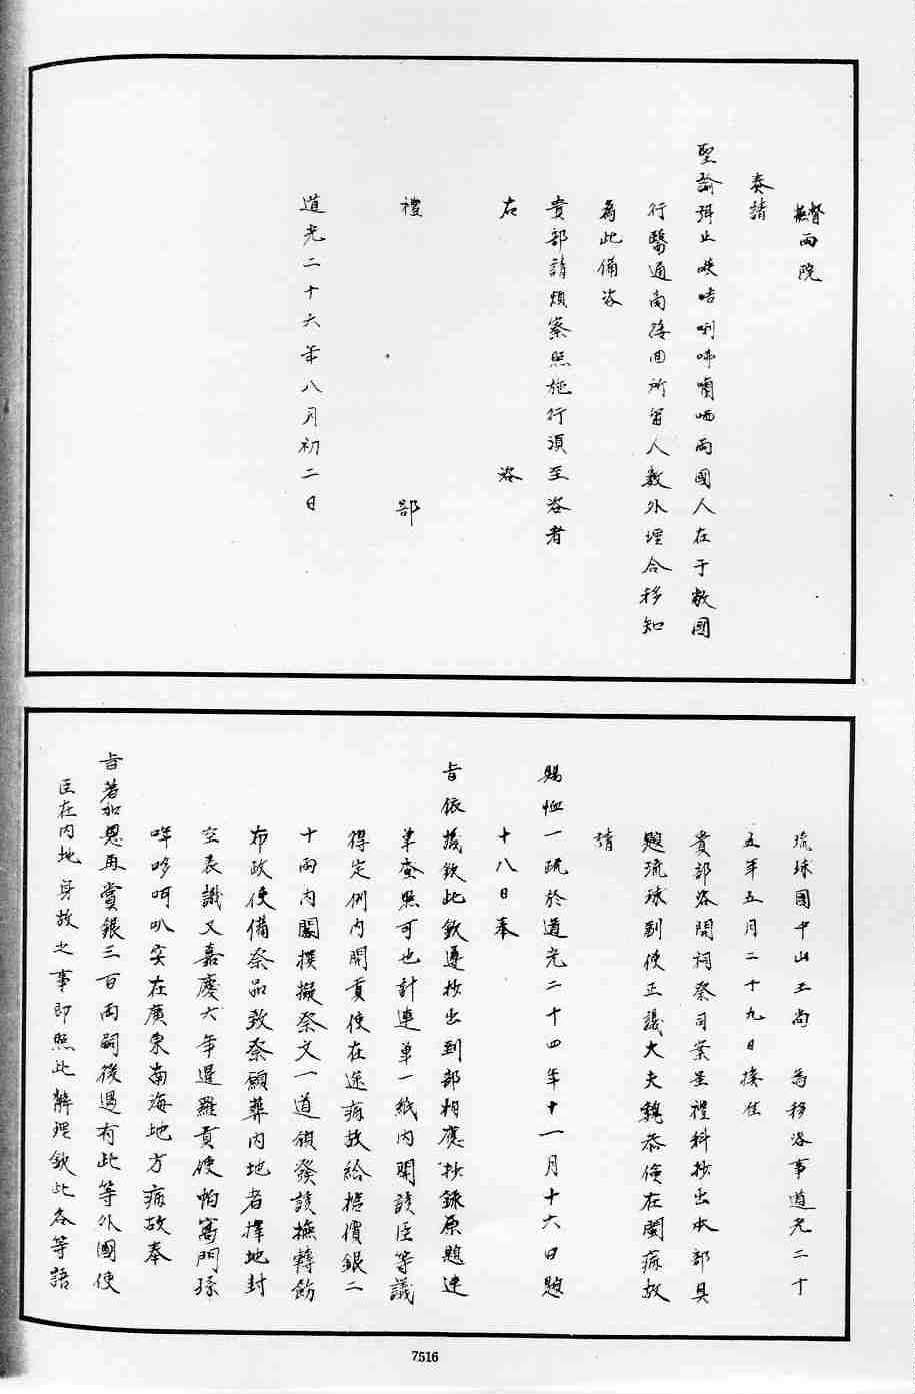 督撫兩院
奏請
聖諭弭止𠸄咭唎咈囒哂兩國人在于敝國
行醫通商接回所留人數外理合移知
為此備咨
貴部請煩察照施行須至咨者
右　咨
禮　部
道光二十六年八月初二日
琉球國中山王尚　為移咨事道光二十
五年五月二十九日接准
貴部咨開祠祭司案呈禮科抄出本部具
題琉球副使正議大夫魏恭儉在閩病故
請
賜恤一疏於道光二十四年十一月十六日題
十八日奉
旨依議欽此欽遵抄出到部相應抄錄原題連
單查照可也計連單一紙內開該臣等議
得定例內開貢使在途病故給棺價銀二
十兩內閣撰擬祭文一道頒發該撫轉飭
布政使備祭品致祭願葬內地者擇地封
空表識又嘉慶六年暹羅貢使帕窩們孫
哖哆呵叭突在廣東南海地方病故奉
旨著加恩再賞銀三百兩嗣後遇有此等外國使
臣在內地身故之事即照此辦理欽此各等語
7516